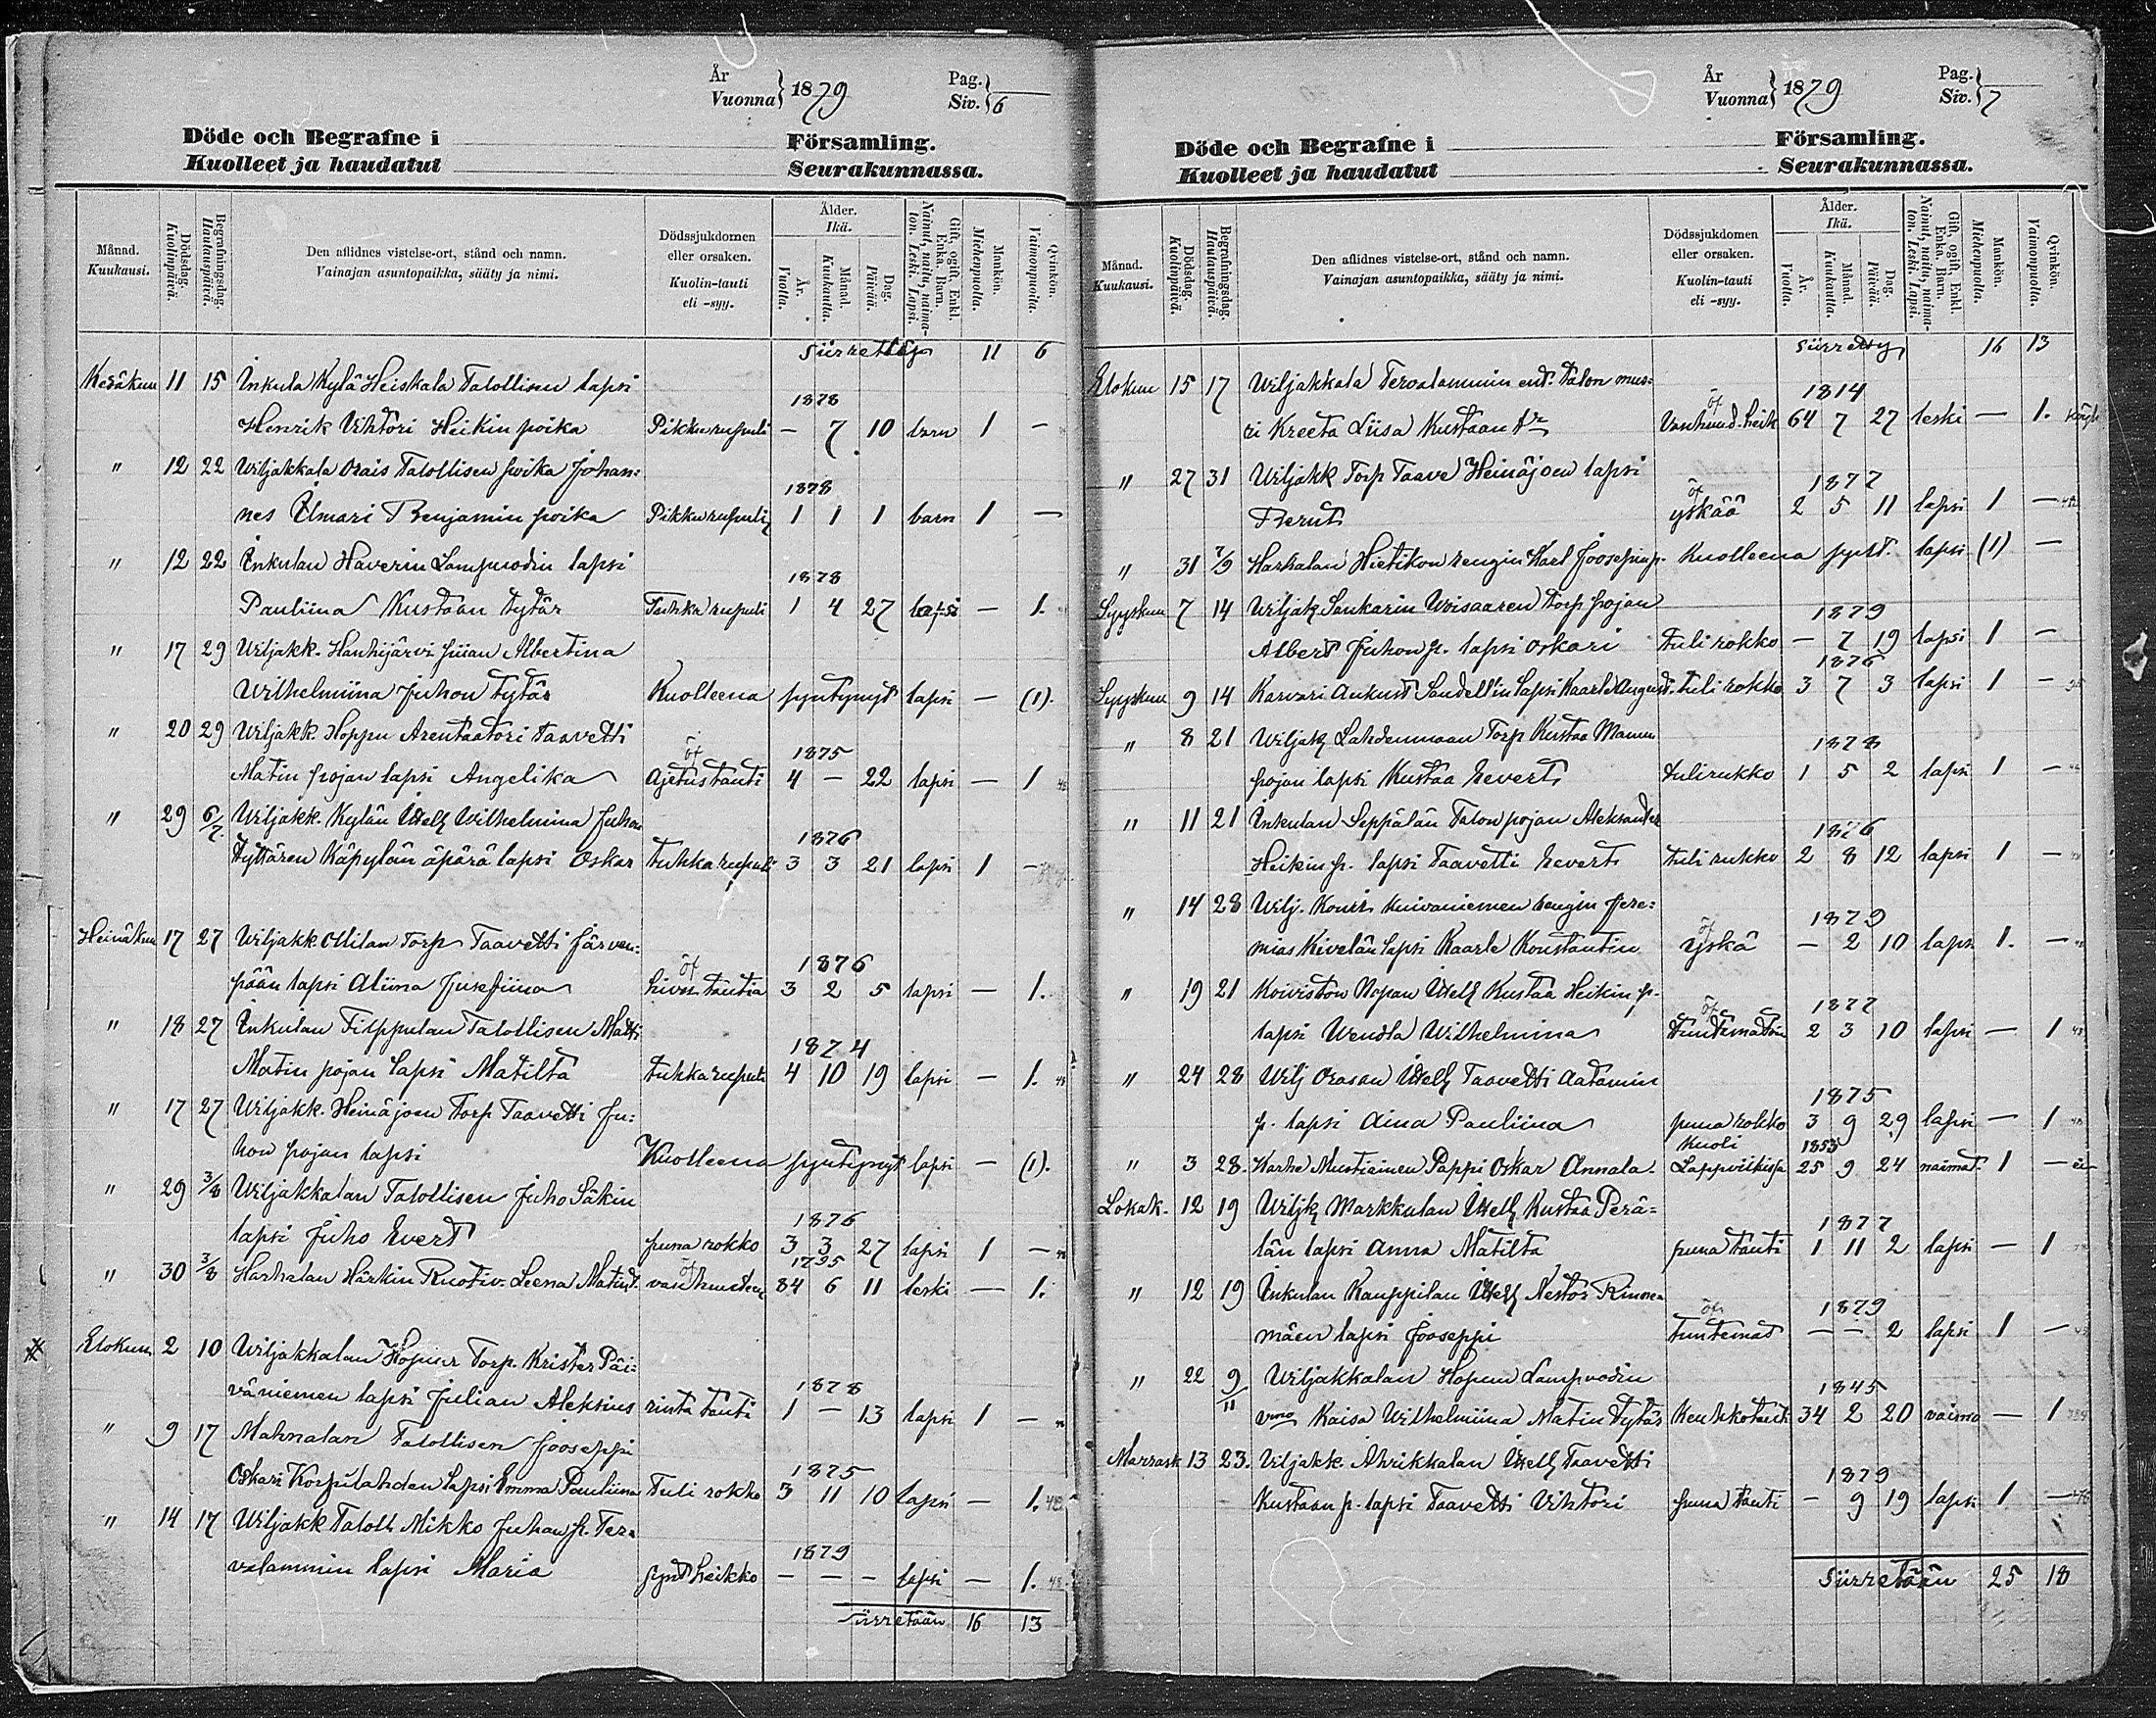 År
Vuonna } 1879
Pag.
Siv. } 6
Döde och Begrafne i Församling.
Kuolleet ja haudatut Seurakunnassa.
Månad. Kuukausi.
Dödsdag. Kuolinpäivä.
Begrafningsdag. Hautauspäivä.
Den aflidnes vistelse-ort, stånd och namn.
Vainajan asuntopaikka, sääty ja nimi.
Dödssjukdomen eller orsaken.
Kuolin-tauti eli -syy.
Ålder. Ikä.
År. Vuotta.
Månad. Kuukautta.
Dag. Päivää.
Gift, ogift, Enkl. Enka. Barn.
Nainut, naitu, naimaton. Leski. Lapsi.
Mankön. Miehenpuolta.
Qvinkön. Vaimonpuolta.
Siirrettyy 11 6
Kesäkuu 11 15 Inkula Kylä Heiskala Talollisen lapsi
1878
Henrik Vihtori Heikin poika Pikku rupuli — 7 10 barn 1 —
" 12 22 Wiljakkala Orais Talollisen poika Johan:
1878
nes Ilmari Benjamin poika Pikku rupuli 1 1 1 barn 1 —
" 12 22 Inkulan Haverin Lampuodin lapsi
1878
Pauliina Kustaan tytär Tuhka rupuli 1 4 27 lapsi — 1.
" 17 29 Wiljakk. Hanhijärvi piian Albertina
Wilhelmiina Juhon tytär Kuolleena syntynyt lapsi — (1).
" 20 29 Wiljakk. Hoppu Arentaatori Taavetti
öf 1875
Matin pojan lapsi Angelika Ajetustauti 4 — 22 lapsi — 1
" 29 6/7. Wiljakk. Kylän Itsell Wilhelmina Juhon
1876
tyttären Käpylän äpärä lapsi Oskar tuhka rupuli 3 3 21 lapsi 1 —
Heinäkuu 17 27 Wiljakk. Ollilan Torp Taavetti Järven:
öf 1876
pään lapsi Aliina Jusefiina 3 2 5 lapsi — 1.
" 18 27 Inkulan Filppulan Talollisen Matti
1874
Matin pojan lapsi Matilta tuhkarupuli 4 10 19 lapsi — 1.
" 17 27 Wiljakk. Heinäjoen Torp Taavetti Ju:
hon pojan lapsi Kuolleena syntynyt lapsi — (1).
" 29 3/8 Wiljakkalan Talollisen Juho Säkin
1876
lapsi Juho Evert puna rokko 3 3 27 lapsi 1 —
öf 1795
" 30 3/8 Harhalan Härkin Ruotiv. Leena Matint. vanhuuden 84 6 11 leski — 1.
Elokuu 2 10 Wiljakkalan Hopun Torp. Krister Päi:
1878
väniemen lapsi Julian Aleksius rinta tauti 1 — 13 lapsi 1 —
" 9 17 Mahnalan Talollisen Jooseppi
1875
Oskari Korpilahden lapsi Emma Pauliina Tuli rokko 3 11 10 lapsi — 1.
" 14 17 Wiljakk Taloll Mikko Juhan p. Ter:
1879
valammin lapsi Maria synt. heikko — — — lapsi — 1.
Siirretään 16 13
År
Vuonna } 1879
Pag.
Siv. } 7
Döde och Begrafne i Församling.
Kuolleet ja haudatut Seurakunnassa.
Månad. Kuukausi.
Dödsdag. Kuolinpäivä.
Begrafningsdag. Hautauspäivä.
Den aflidnes vistelse-ort, stånd och namn.
Vainajan asuntopaikka, sääty ja nimi.
Dödssjukdomen eller orsaken.
Kuolin-tauti eli -syy.
Ålder. Ikä.
År. Vuotta.
Månad. Kuukautta.
Dag. Päivää.
Gift, ogift, Enkl. Enka. Barn.
Nainut, naitu, naimaton. Leski. Lapsi.
Mankön. Miehenpuolta.
Qvinkön. Vaimonpuolta.
Siirretty 16 13
Elokuu 15 17 Wiljakkala Tervalammin ent. Talon muo:
öf 1814
ri Kreeta Liisa Kustaan tr 64 7 27 leski — 1.
" 27 31 Wiljakk Torp Taave Heinäjoen lapsi
öf 1877
Berut yskää 2 5 11 lapsi 1 —
" 31 7/9 Harhalan Hietikon rengin Karl Joosepin p. Kuolleena synt. lapsi (1) —
Syyskuu 7 14 Wiljak Sankarin Woisaaren Torp pojan
1879
Albert Juhon p. lapsi Oskari tuli rokko — 7 19 lapsi 1 —
1876
Syyskuu 9 14 Karvari Aukust Sandell'in lapsi Kaarle August. tuli rokko 3 7 3 lapsi 1 —
" 8 21 Wiljak Lahdenmaan Torp Kustaa Manun
1878
pojan lapsi Kustaa Evert tulirukko 1 5 2 lapsi 1 —
" 11 21 Inkulan Seppälän Talon pojan Aleksanter
1876
Heikin p. lapsi Taavetti Evert tuli rukko 2 8 12 lapsi 1 —
" 14 28 Wilj. Kouri Kuivaniemen rengin Jere:
öf 1879
mias Kivelän lapsi Kaarle Konstantin yskä — 2 10 lapsi 1. —
" 19 21 Koiviston Nopan Itsell Kustaa Heikin p.
öf 1877
lapsi Wendla Wilhelmina tuntematoin 2 3 10 lapsi — 1
" 24 28 Wilj Orasan Itsell Taavetti Aatamin
1875
p. lapsi Aina Pauliina puna rokko 3 9 29 lapsi — 1
Kuoli 1853
" 3 28. Karhe Mustiainen Pappi Oskar Annala. Lappviikissa 25 9 24 naimat. 1 —
Lokak. 12 19 Wiljk Markkulan Itsell Kustaa Perä-
1877
län lapsi Anna Matilta puna tauti 1 11 2 lapsi — 1
" 12 19 Inkulan Kauppilan Itsell Nestor Rinne-
öf 1879
mäen lapsi Jooseppi tuntemat — — 2 lapsi 1 —
" 22 9/11 Wiljakkalan Hopun Lampuodin
1845
vmo Kaisa Wilhelmiina Matin tytär Keuhkotauti 34 2 20 vaimo — 1
Marrask 13 23. Viljakk. Ahrikkalan Itsell Taavetti
1879
Kustaan p. lapsi Taavetti Vihtori puna tauti — 9 19 lapsi 1 —
Siirretään 25 18